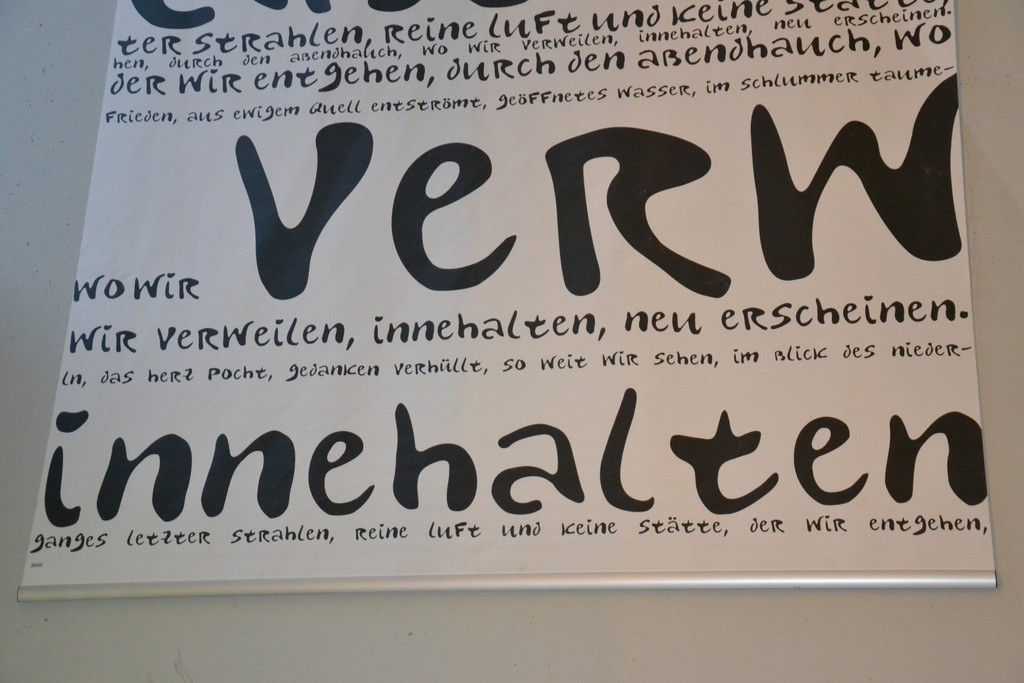 ter strahlen, reine luft und keine stätte,
hen, durch den abendhauch, wo wir verweilen, innehalten, neu erscheinen.
der wir entgehen, durch den abendhauch, wo
Frieden, aus ewigem Quell entströmt, geöffnetes wasser, im schlummer taume-
wo wir verw
wir verweilen, innehalten, neu erscheinen.
ln, das herz pocht, gedanken verhüllt, so weit wir sehen, im Blick des nieder-
innehalten
ganges letzter strahlen, reine luft und keine stätte, der wir entgehen,